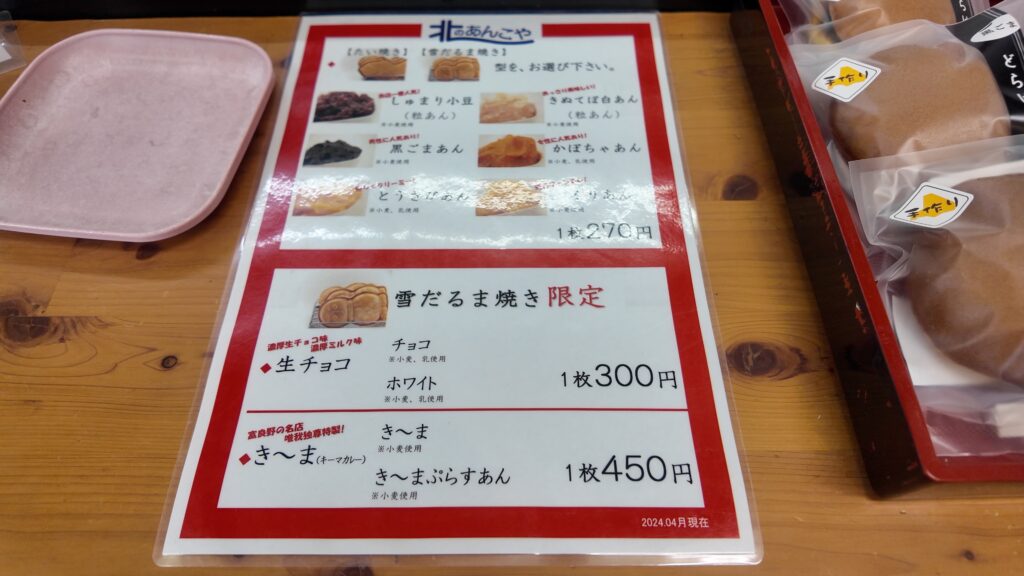 北のあんこや
【たい焼き】【雪だるま焼き】
型を、お選び下さい。
しゅまり小豆
(粒あん)
※小麦使用
あっさり美味しい!
きぬてぼ白あん
(粒あん)
※小麦使用
男性に人気あり!
黒ごまあん
※小麦使用
女性に人気あり!
かぼちゃあん
※小麦、乳使用
とうきびあん
※小麦、乳使用
※小麦使用
1枚270円
雪だるま焼き 限定
濃厚生チョコ味
濃厚ミルク味
◆生チョコ
チョコ
※小麦、乳使用
ホワイト
※小麦、乳使用
1枚300円
富良野の名店
唯我独尊特製!
◆き〜ま(キーマカレー)
き〜ま
※小麦使用
き〜まぷらすあん
※小麦使用
1枚450円
2024.04月現在
手作り
手作り
黒ごま
どら